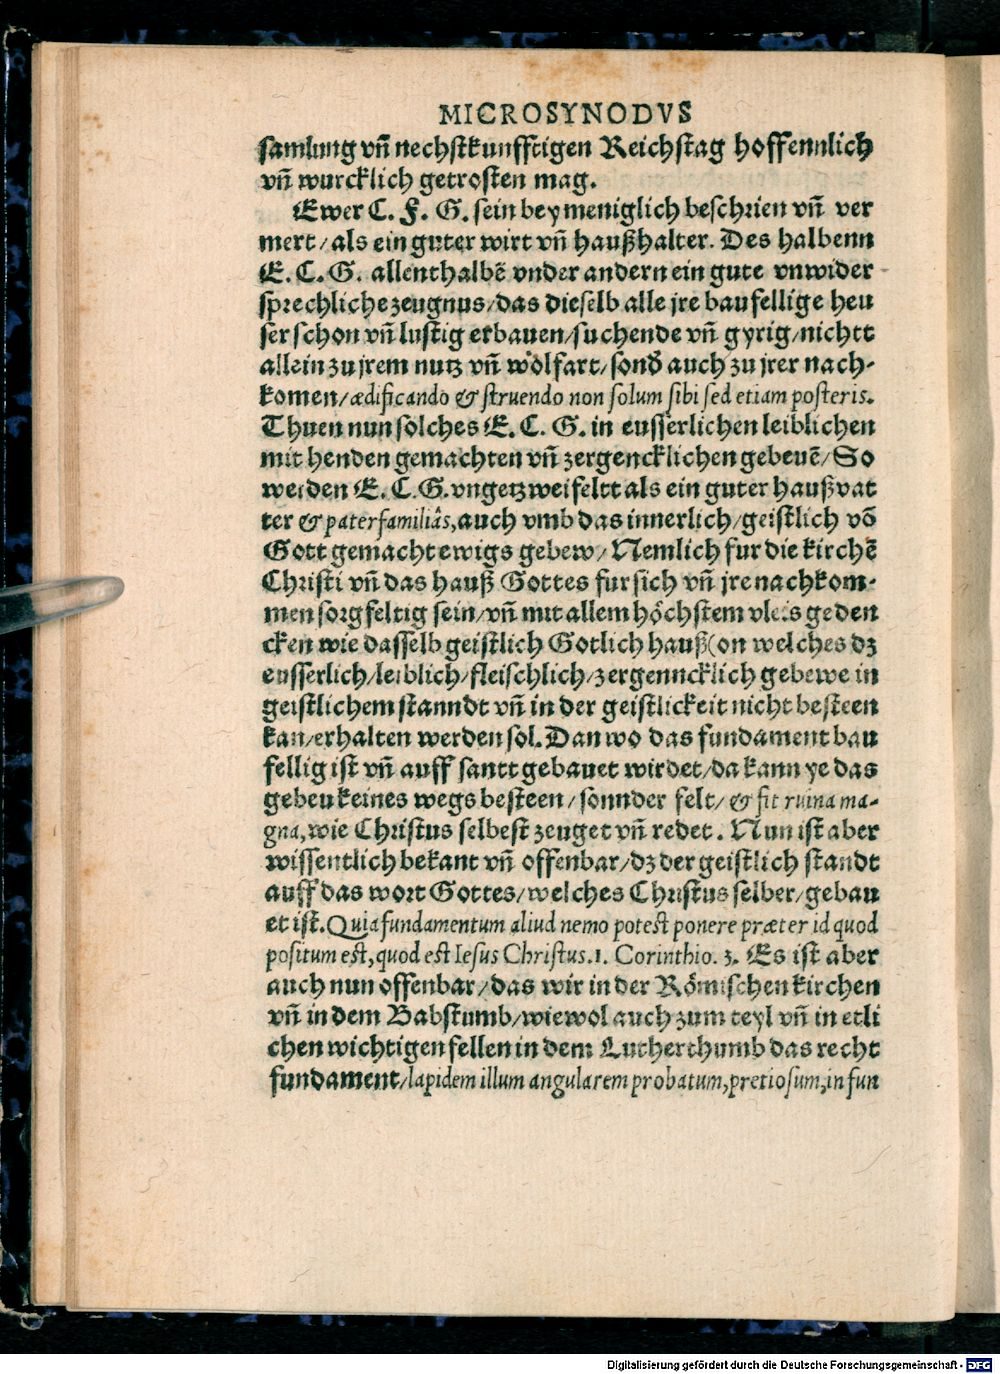 MICROSYNODVS
samlung vn̄ nechstkunfftigen Reichstag hoffennlich
vn̄ wurcklich getrosten mag.
Ewer C. F. G. sein bey meniglich beschrien vn̄ ver
mert/als ein guter wirt vn̄ haußhalter. Des halbenn
E. C. G. allenthalbē vnder andern ein gute vnwider
sprechliche zeugnus/das dieselb alle jre baufellige heu
ser schon vn̄ lustig erbauen/suchende vn̄ gyrig/nichtt
allein zu jrem nutz vn̄ wolfart/sond̄ auch zu jrer nach-
komen/ædificando & struendo non solum sibi sed etiam posteris.
Thuen nun solches E. C. G. in eusserlichen leiblichen
mit henden gemachten vn̄ zergencklichen gebeuē/So
werden E. C. G. vngetzweifeltt als ein guter haußvat
ter & paterfamiliâs, auch vmb das innerlich/geistlich vō
Gott gemacht ewigs gebew/Nemlich fur die kirchē
Christi vn̄ das hauß Gottes fur sich vn̄ jre nachkom-
men sorgfeltig sein/vn̄ mit allem höchstem vleis geden
cken wie dasselb geistlich Gotlich hauß(on welches dz
eusserlich/leiblich/fleischlich/zergenncklich gebewe in
geistlichem stanndt vn̄ in der geistlickeit nicht besteen
kan/erhalten werden sol. Dan wo das fundament bau
fellig ist vn̄ auff santt gebauet wirdet/da kann ye das
gebeu keines wegs besteen/sonnder felt/& fit ruina ma-
gna, wie Christus selbest zeuget vn̄ redet. Nun ist aber
wissentlich bekant vn̄ offenbar/dz der geistlich standt
auff das wort Gottes/welches Christus selber/gebau
et ist. Quia fundamentum aliud nemo potest ponere præter id quod
positum est, quod est Iesus Christus. 1. Corinthio. 3. Es ist aber
auch nun offenbar/das wir in der Römischen kirchen
vn̄ in dem Babstumb/wiewol auch zum teyl vn̄ in etli
chen wichtigen fellen in dem Lutherthumb das recht
fundament/lapidem illum angularem probatum, pretiosum, in fun
Digitalisierung gefördert durch die Deutsche Forschungsgemeinschaft - DFG